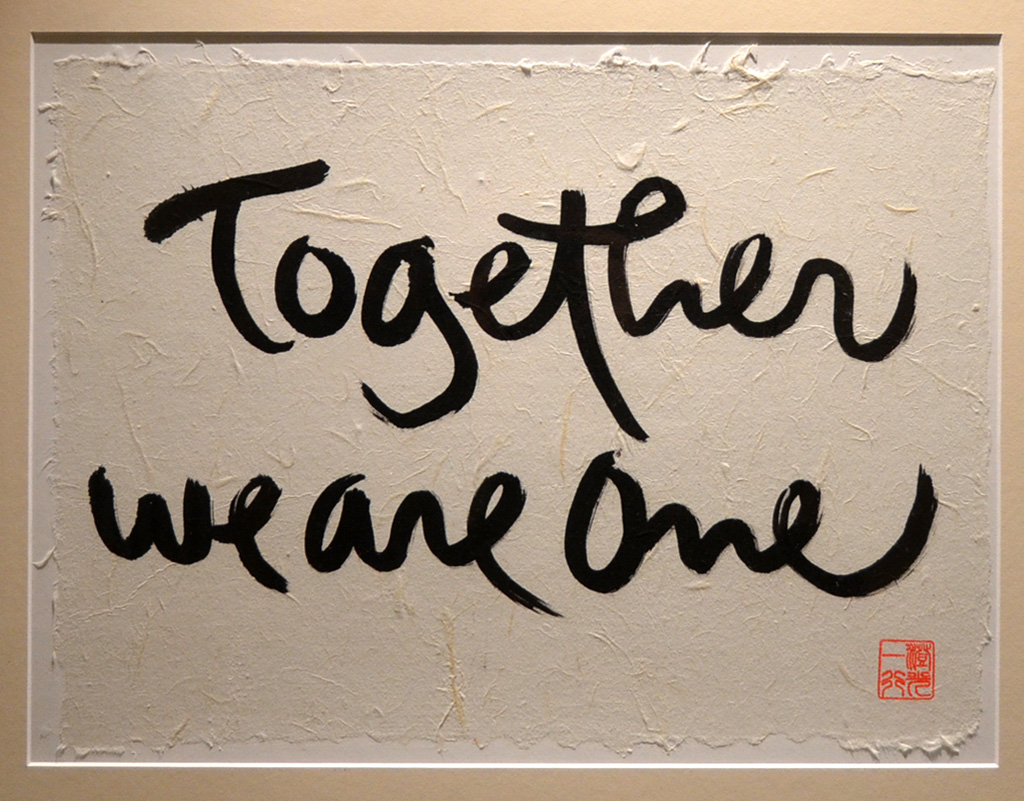 Together
we are one
澄光
一行